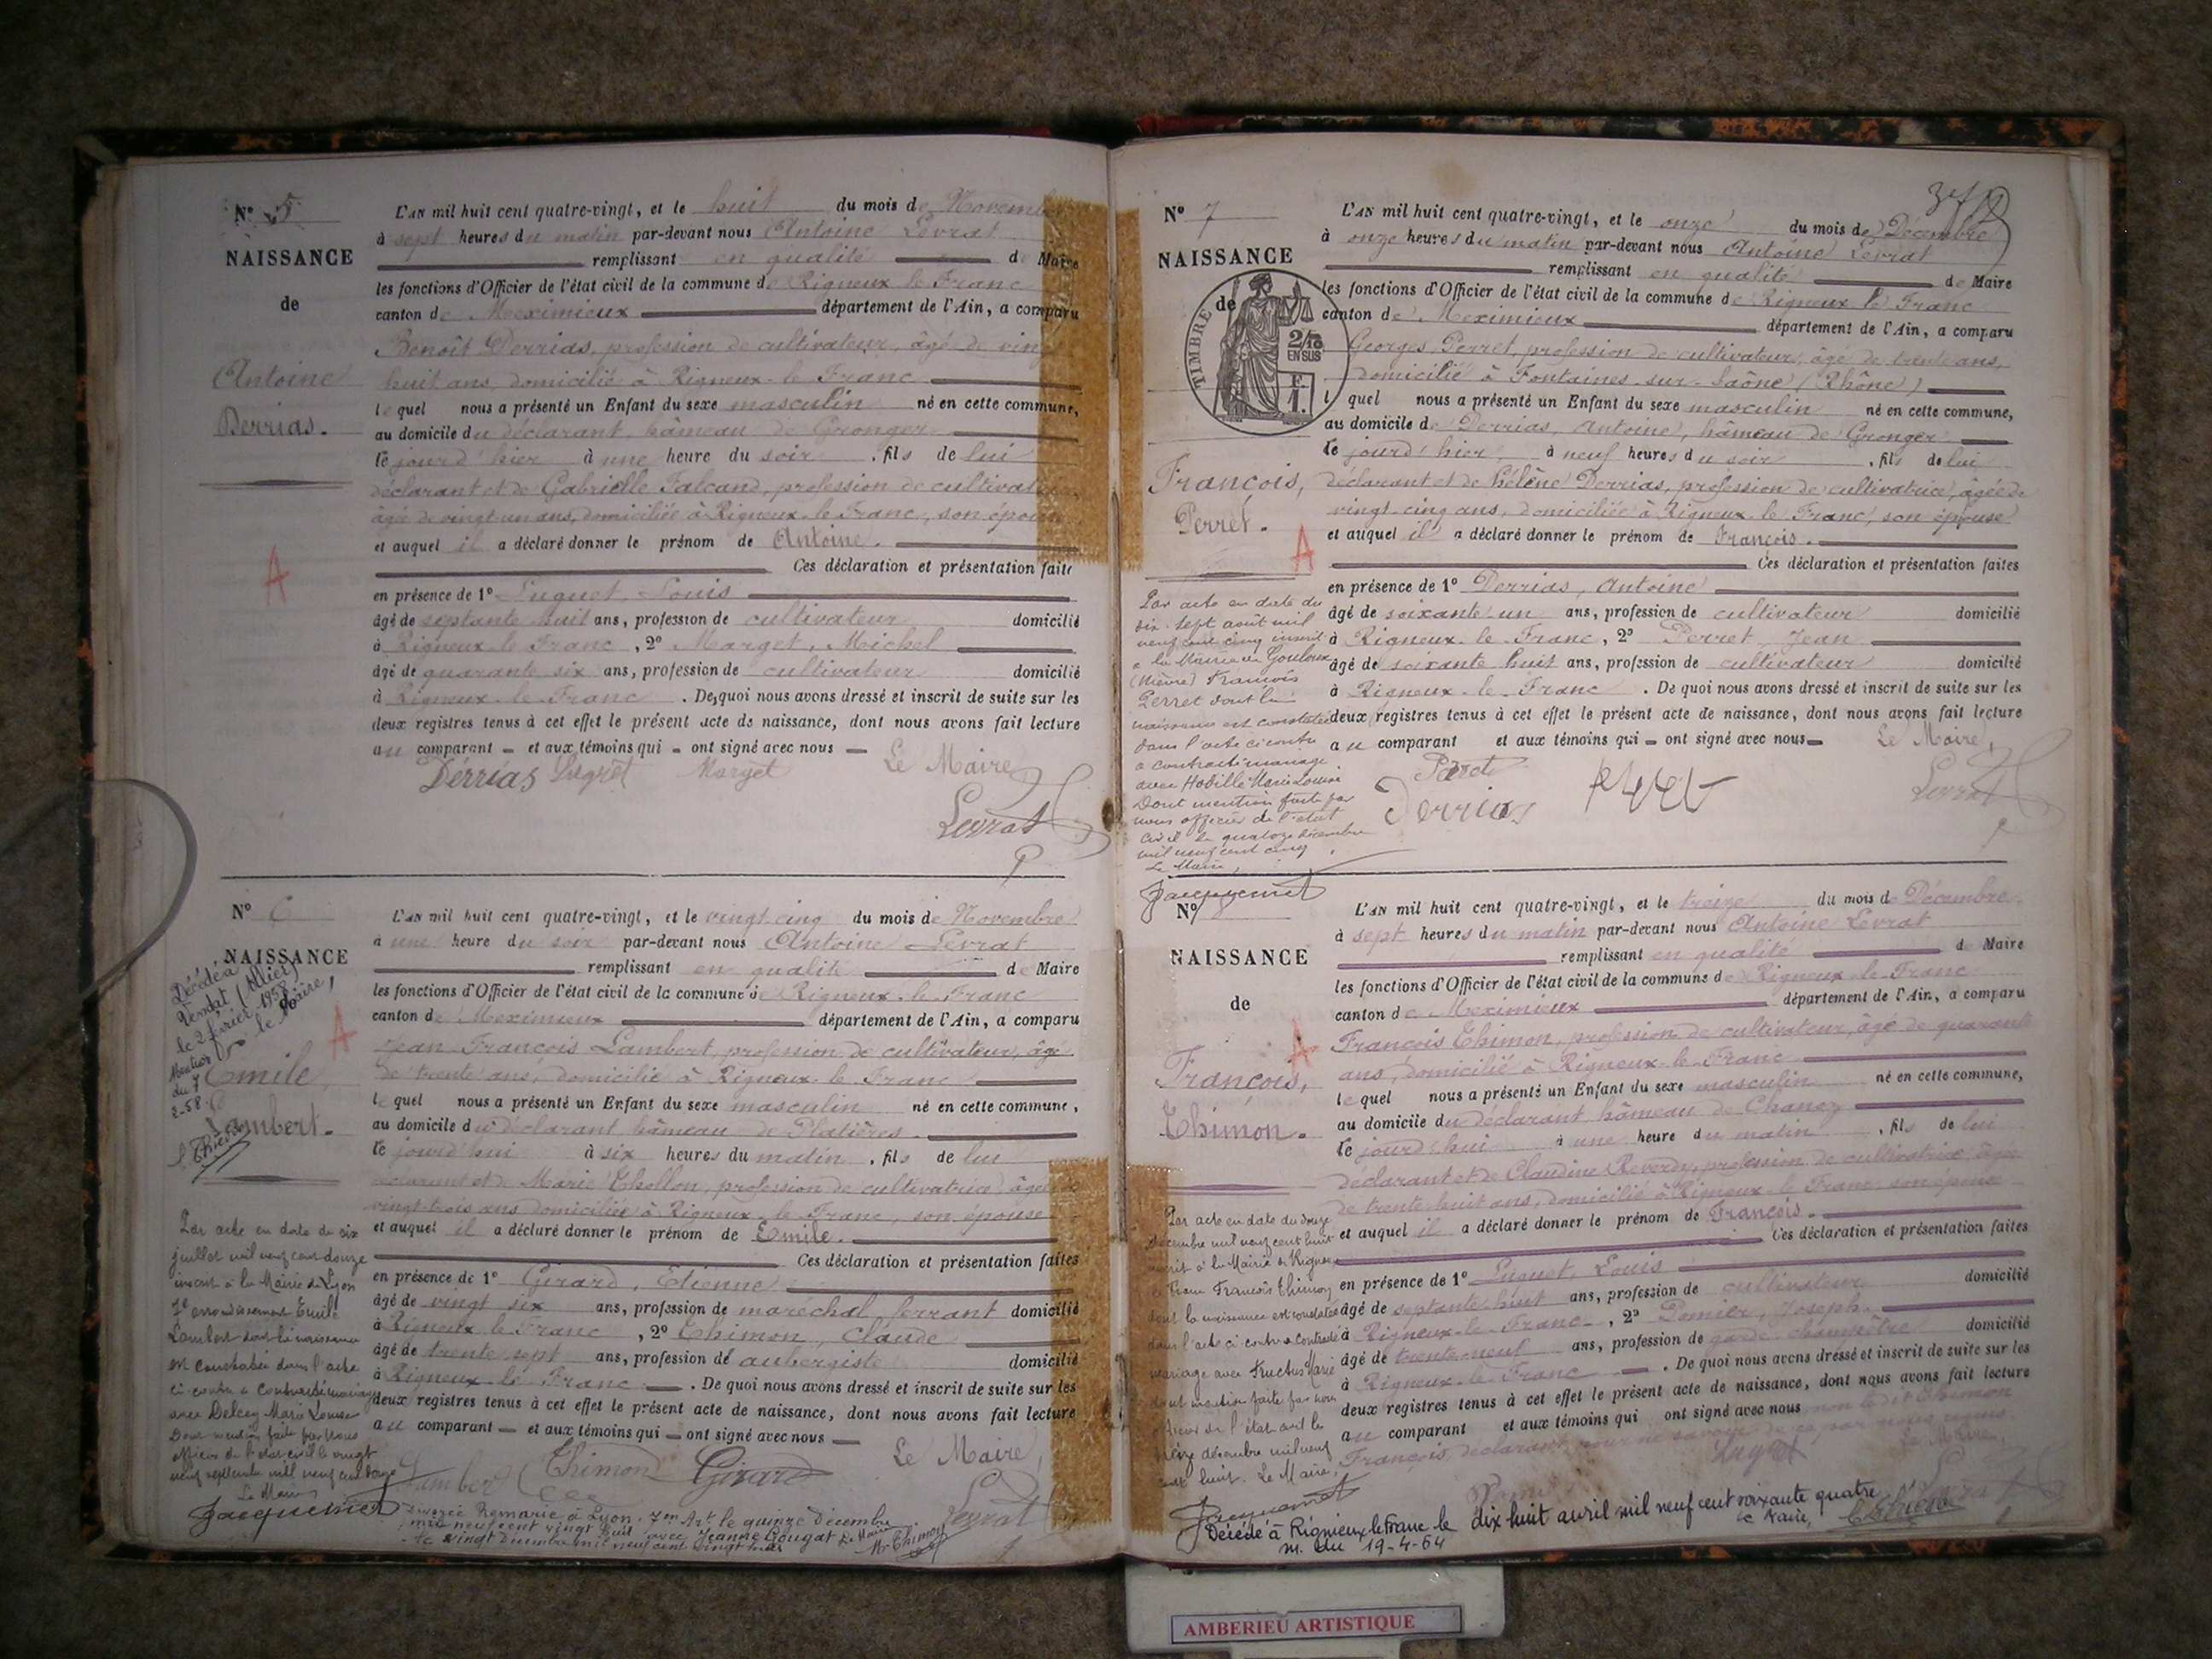 Nº 5
NAISSANCE
de
Antoine
Derrias.
A
L'AN mil huit cent quatre-vingt, et le huit du mois de Novembre
à sept heures du matin par-devant nous Antoine Levrat
remplissant en qualité de Maire
les fonctions d'Officier de l'état civil de la commune de Rigneux le Franc
canton de Meximieux département de l'Ain, a comparu
Benoît Derrias, profession de cultivateur, âgé de vingt
huit ans, domicilié à Rigneux-le Franc
lequel nous a présenté un Enfant du sexe masculin né en cette commune,
au domicile du déclarant, hâmeau de Gronger
le jourd'hier à une heure du soir, fils de lui
déclarant et de Gabrielle Falcand, profession de
âgée de vingt-un ans, domiciliée à Rigneux-le Franc, son épouse
et auquel il a déclaré donner le prénom de Antoine.
Ces déclaration et présentation faite
en présence de 1º Luquet, Louis
âgé de septante huit ans, profession de cultivateur domicilié
à Rigneux le Franc, 2º Marget, Michel
âgé de quarante six ans, profession de cultivateur domicilié
à Rigneux-le-Franc. De quoi nous avons dressé et inscrit de suite sur les
deux registres tenus à cet effet le présent acte de naissance, dont nous avons fait lecture
au comparant et aux témoins qui ont signé avec nous
Le Maire
Dérrias Luget Marget
Levrat
Nº 6
NAISSANCE
Décédé à
Vendat (Allier)
le 2 février 1958
Mention le Maire,
du 7
2-58.
Emile,
Lambert.
A
L'AN mil huit cent quatre-vingt, et le vingt cinq du mois de Novembre
à une heure du soir par-devant nous Antoine Levrat
remplissant en qualité de Maire
les fonctions d'Officier de l'état civil de la commune de Rigneux-le-Franc
canton de Meximieux département de l'Ain, a comparu
Jean François Lambert, profession de cultivateur, âgé
de trente ans, domicilié à Rigneux-le Franc
lequel nous a présenté un Enfant du sexe masculin né en cette commune,
au domicile du déclarant hâmeau de Platières
le jourd'hui à six heures du matin, fils de lui
déclarant et de Marie Chollon, profession de cultivatrice, âgée de
vingt-trois ans domiciliée à Rigneux-le Franc, son épouse
et auquel il a déclaré donner le prénom de Emile.
Ces déclaration et présentation faites
en présence de 1º Girard, Etienne
âgé de vingt six ans, profession de maréchal ferrant domicilié
à Rigneux le Franc, 2º Thimon, Claude
âgé de trente sept ans, profession de aubergiste domicilié
à Rigneux-le Franc. De quoi nous avons dressé et inscrit de suite sur les
deux registres tenus à cet effet le présent acte de naissance, dont nous avons fait lecture
au comparant et aux témoins qui ont signé avec nous
Le Maire,
Lambert Thimon Girard
Levrat
Par acte en date du six
juillet mil neuf cent douze
inscrit à la Mairie de Lyon
7e arrondissement Emile
Lambert dont la naissance
est constatée dans l'acte
ci-contre a contracté mariage
avec Delcey Marie Louise
Dont mention faite par nous
officier de l'état civil le vingt
neuf septembre mil neuf cent douze
Le Maire
Jacquemet
Divorcé Remarié à Lyon. 7em Art le quinze décembre
mil neuf cent vingt huit avec Jeanne Gougat Le Maire
le vingt décembre mil neuf cent vingt huit Mr Thimon
Nº 7
NAISSANCE
de
TIMBRE
2/10
EN SUS
F.
1.
François,
Perret.
A
L'AN mil huit cent quatre-vingt, et le onze du mois de Décembre
à onze heures du matin par-devant nous Antoine Levrat
remplissant en qualité de Maire
les fonctions d'Officier de l'état civil de la commune de Rigneux le Franc
canton de Meximieux département de l'Ain, a comparu
Georges Perret, profession de cultivateur, âgé de trente ans,
domicilié à Fontaines-sur-Saône (Rhône)
l quel nous a présenté un Enfant du sexe masculin né en cette commune,
au domicile de Derrias, Antoine, hâmeau de Gronger
le jourd'hier, à neuf heures du soir, fils de lui
déclarant et de Hélène Derrias, profession de cultivatrice, âgée de
vingt-cinq ans, domiciliée à Rigneux-le Franc, son épouse
et auquel il a déclaré donner le prénom de François.
Ces déclaration et présentation faites
en présence de 1º Derrias, Antoine
âgé de soixante-un ans, profession de cultivateur domicilié
à Rigneux-le Franc, 2º Perret, Jean
âgé de soixante huit ans, profession de cultivateur domicilié
à Rigneux-le-Franc. De quoi nous avons dressé et inscrit de suite sur les
deux registres tenus à cet effet le présent acte de naissance, dont nous avons fait lecture
au comparant et aux témoins qui ont signé avec nous
Le Maire,
Derrias
Levrat
Par acte en date du
dix-sept août mil
neuf cent cinq inscrit
à la Mairie de Gouloux
(Nièvre) François
Perret dont la
naissance est constatée
dans l'acte ci contre
a contracté mariage
avec Hobille Marie Louise
Dont mention faite par
nous officier de l'état
civil le quatorze décembre
mil neuf cent cinq.
Le Maire,
Jacquemet
Nº
NAISSANCE
de
François,
Thimon.
A
L'AN mil huit cent quatre-vingt, et le treize du mois de Décembre
à sept heures du matin par-devant nous Antoine Levrat
remplissant en qualité de Maire
les fonctions d'Officier de l'état civil de la commune de Rigneux-le-Franc
canton de Meximieux département de l'Ain, a comparu
François Thimon, profession de cultivateur, âgé de quarante
ans, domicilié à Rigneux-le-Franc
lequel nous a présenté un Enfant du sexe masculin né en cette commune,
au domicile du déclarant hâmeau de Chanoz
le jourd'hui à une heure du matin, fils de lui
déclarant et de Claudine Reverdy, profession de cultivatrice, âgée
de trente-huit ans, domicilié à Rigneux-le Franc, son épouse
et auquel il a déclaré donner le prénom de François.
Ces déclaration et présentation faites
en présence de 1º Luquet, Louis
âgé de septante huit ans, profession de cultivateur domicilié
à Rigneux-le-Franc, 2º Joseph
âgé de trente-neuf ans, profession de garde champêtre domicilié
à Rigneux-le Franc. De quoi nous avons dressé et inscrit de suite sur les
deux registres tenus à cet effet le présent acte de naissance, dont nous avons fait lecture
au comparant et aux témoins qui ont signé avec nous non le dit Thimon
François, déclarant, pour ne savoir
Luget
Par acte en date du douze
décembre mil neuf cent huit
inscrit à la Mairie de Rigneux
le Franc François Thimon
dont la naissance est constatée
dans l'acte ci-contre a contracté
mariage avec Marie
dont mention faite par nous
officier de l'état civil le
décembre mil neuf
cent huit. Le Maire,
Jacquemet
Décédé à Rignieux le Franc le dix huit avril mil neuf cent soixante quatre
le Maire,
m. du 19-4-64
AMBERIEU ARTISTIQUE